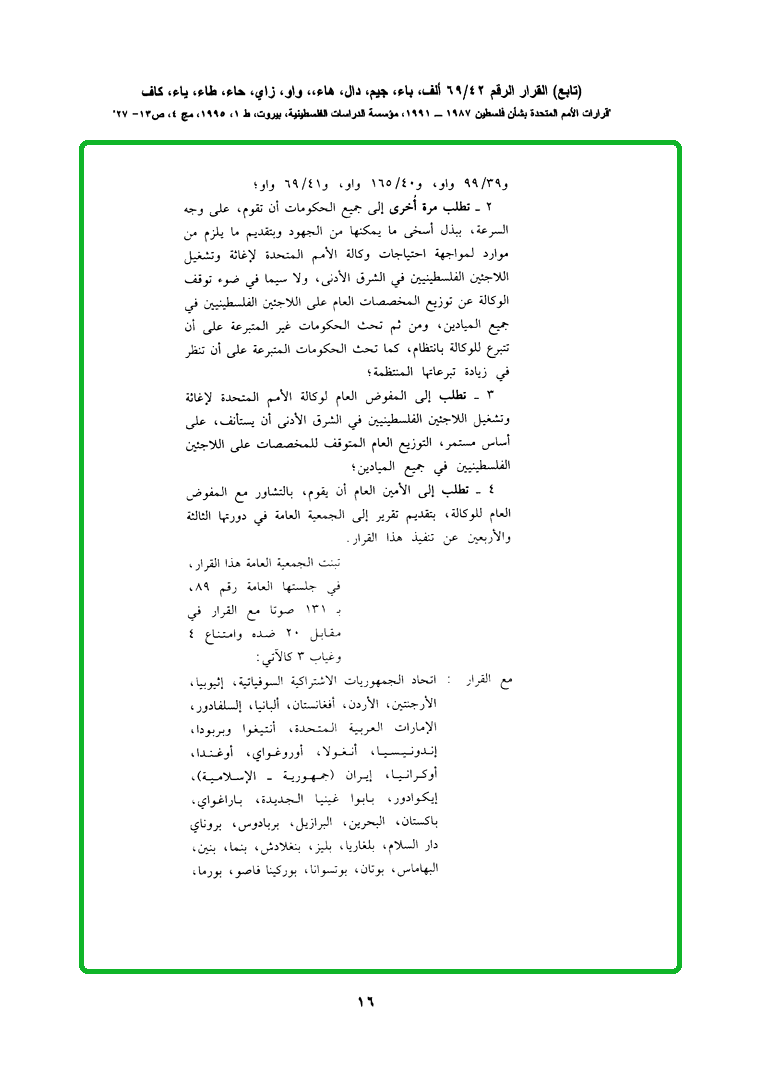 (تابع) القرار الرقم ٦٩/٤٢ ألف، باء، جيم، دال، هاء،، واو، زاي، حاء، طاء، ياء، كاف
"قرارات الأمم المتحدة بشأن فلسطين ١٩٨٧ ـــ ١٩٩١، مؤسسة الدراسات الفلسطينية، بيروت، ط ١، ١٩٩٥، مج ٤، ص١٣- ٢٧"
و٩٩/٣٩ واو، و١٦٥/٤٠ واو، و٦٩/٤١ واو؛
٢ ـ تطلب مرة أُخرى إلى جميع الحكومات أن تقوم، على وجه
السرعة، ببذل أسخى ما يمكنها من الجهود وبتقديم ما يلزم من
موارد لمواجهة احتياجات وكالة الأمم المتحدة لإغاثة وتشغيل
اللاجئين الفلسطينيين في الشرق الأدنى، ولا سيما في ضوء توقف
الوكالة عن توزيع المخصصات العام على اللاجئين الفلسطينيين في
جميع الميادين، ومن ثم تحث الحكومات غير المتبرعة على أن
تتبرع للوكالة بانتظام، كما تحث الحكومات المتبرعة على أن تنظر
في زيادة تبرعاتها المنتظمة؛
٣ ـ تطلب إلى المفوض العام لوكالة الأمم المتحدة لإغاثة
وتشغيل اللاجئين الفلسطينيين في الشرق الأدنى أن يستأنف، على
أساس مستمر، التوزيع العام المتوقف للمخصصات على اللاجئين
الفلسطينيين في جميع الميادين؛
٤ ـ تطلب إلى الأمين العام أن يقوم، بالتشاور مع المفوض
العام للوكالة، بتقديم تقرير إلى الجمعية العامة في دورتها الثالثة
والأربعين عن تنفيذ هذا القرار.
تبنت الجمعية العامة هذا القرار،
في جلستها العامة رقم ٨٩،
بـ ١٣١ صوتا مع القرار في
مقابل ٢٠ ضده وامتناع ٤
وغياب ٣ كالآتي:
مع القرار : اتحاد الجمهوريات الاشتراكية السوفياتية، إثيوبيا،
الأرجنتين، الأردن، أفغانستان، ألبانيا، إلسلفادور،
الإمارات العربية المتحدة، أنتيغوا وبربودا،
إندونيسيا، أنغولا، أوروغواي، أوغندا،
أوكرانيا، إيران (جمهورية ـ الإسلامية)،
إيكوادور، بابوا غينيا الجديدة، باراغواي،
باكستان، البحرين، البرازيل، بربادوس، بروناي
دار السلام، بلغاريا، بليز، بنغلادش، بنما، بنين،
البهاماس، بوتان، بوتسوانا، بوركينا فاصو، بورما،
١٦